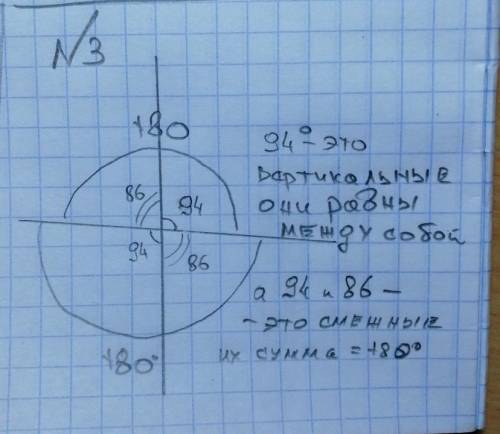 №3
180
86
94
94
86
180°
94° - это
вертикальные
они равны
между собой
а 94 и 86 -
- это смежные
их сумма = 180°